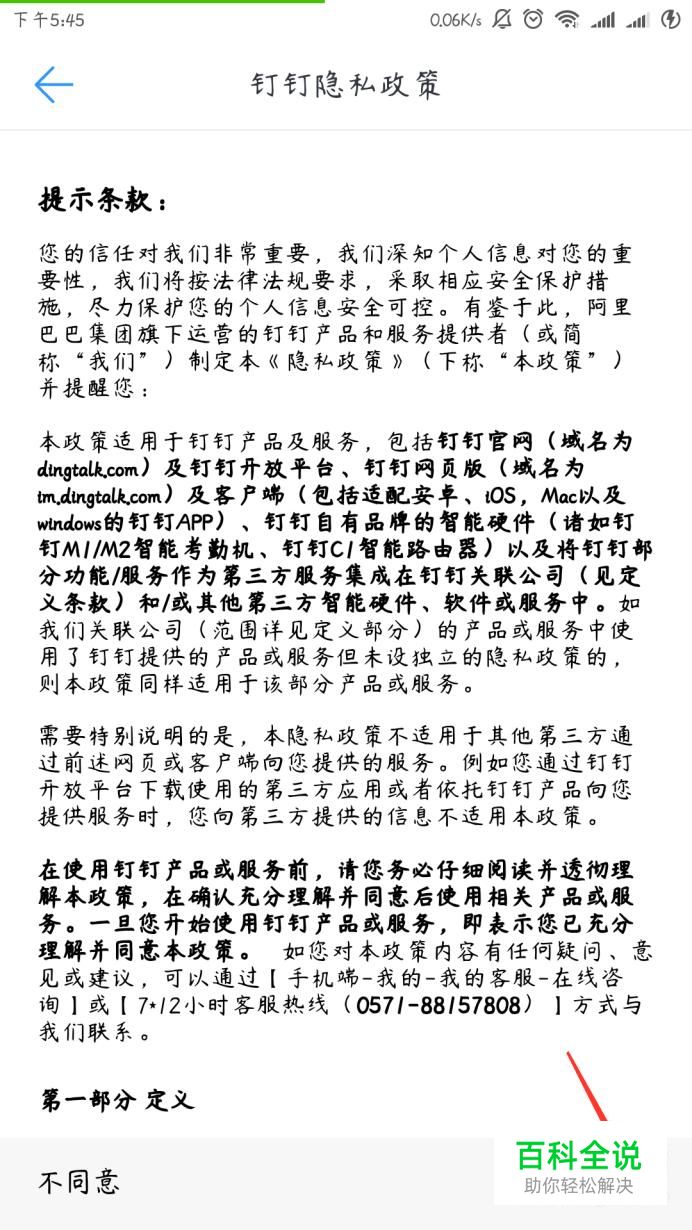 下午5:45
0.06K/s
钉钉隐私政策
提示条款：
您的信任对我们非常重要，我们深知个人信息对您的重
要性，我们将按法律法规要求，采取相应安全保护措
施，尽力保护您的个人信息安全可控。有鉴于此，阿里
巴巴集团旗下运营的钉钉产品和服务提供者（或简
称“我们”）制定本《隐私政策》（下称“本政策”）
并提醒您：
本政策适用于钉钉产品及服务，包括钉钉官网（域名为
dingtalk.com）及钉钉开放平台、钉钉网页版（域名为
im.dingtalk.com）及客户端（包括适配安卓、iOS，Mac以及
windows的钉钉APP）、钉钉自有品牌的智能硬件（诸如钉
钉M1/M2智能考勤机、钉钉C1智能路由器）以及将钉钉部
分功能/服务作为第三方服务集成在钉钉关联公司（见定
义条款）和/或其他第三方智能硬件、软件或服务中。如
我们关联公司（范围详见定义部分）的产品或服务中使
用了钉钉提供的产品或服务但未设独立的隐私政策的，
则本政策同样适用于该部分产品或服务。
需要特别说明的是，本隐私政策不适用于其他第三方通
过前述网页或客户端向您提供的服务。例如您通过钉钉
开放平台下载使用的第三方应用或者依托钉钉产品向您
提供服务时，您向第三方提供的信息不适用本政策。
在使用钉钉产品或服务前，请您务必仔细阅读并透彻理
解本政策，在确认充分理解并同意后使用相关产品或服
务。一旦您开始使用钉钉产品或服务，即表示您已充分
理解并同意本政策。 如您对本政策内容有任何疑问、意
见或建议，可以通过【手机端-我的-我的客服-在线咨
询】或【7*12小时客服热线（0571-88157808）】方式与
我们联系。
第一部分 定义
不同意
百科全说
助你轻松解决